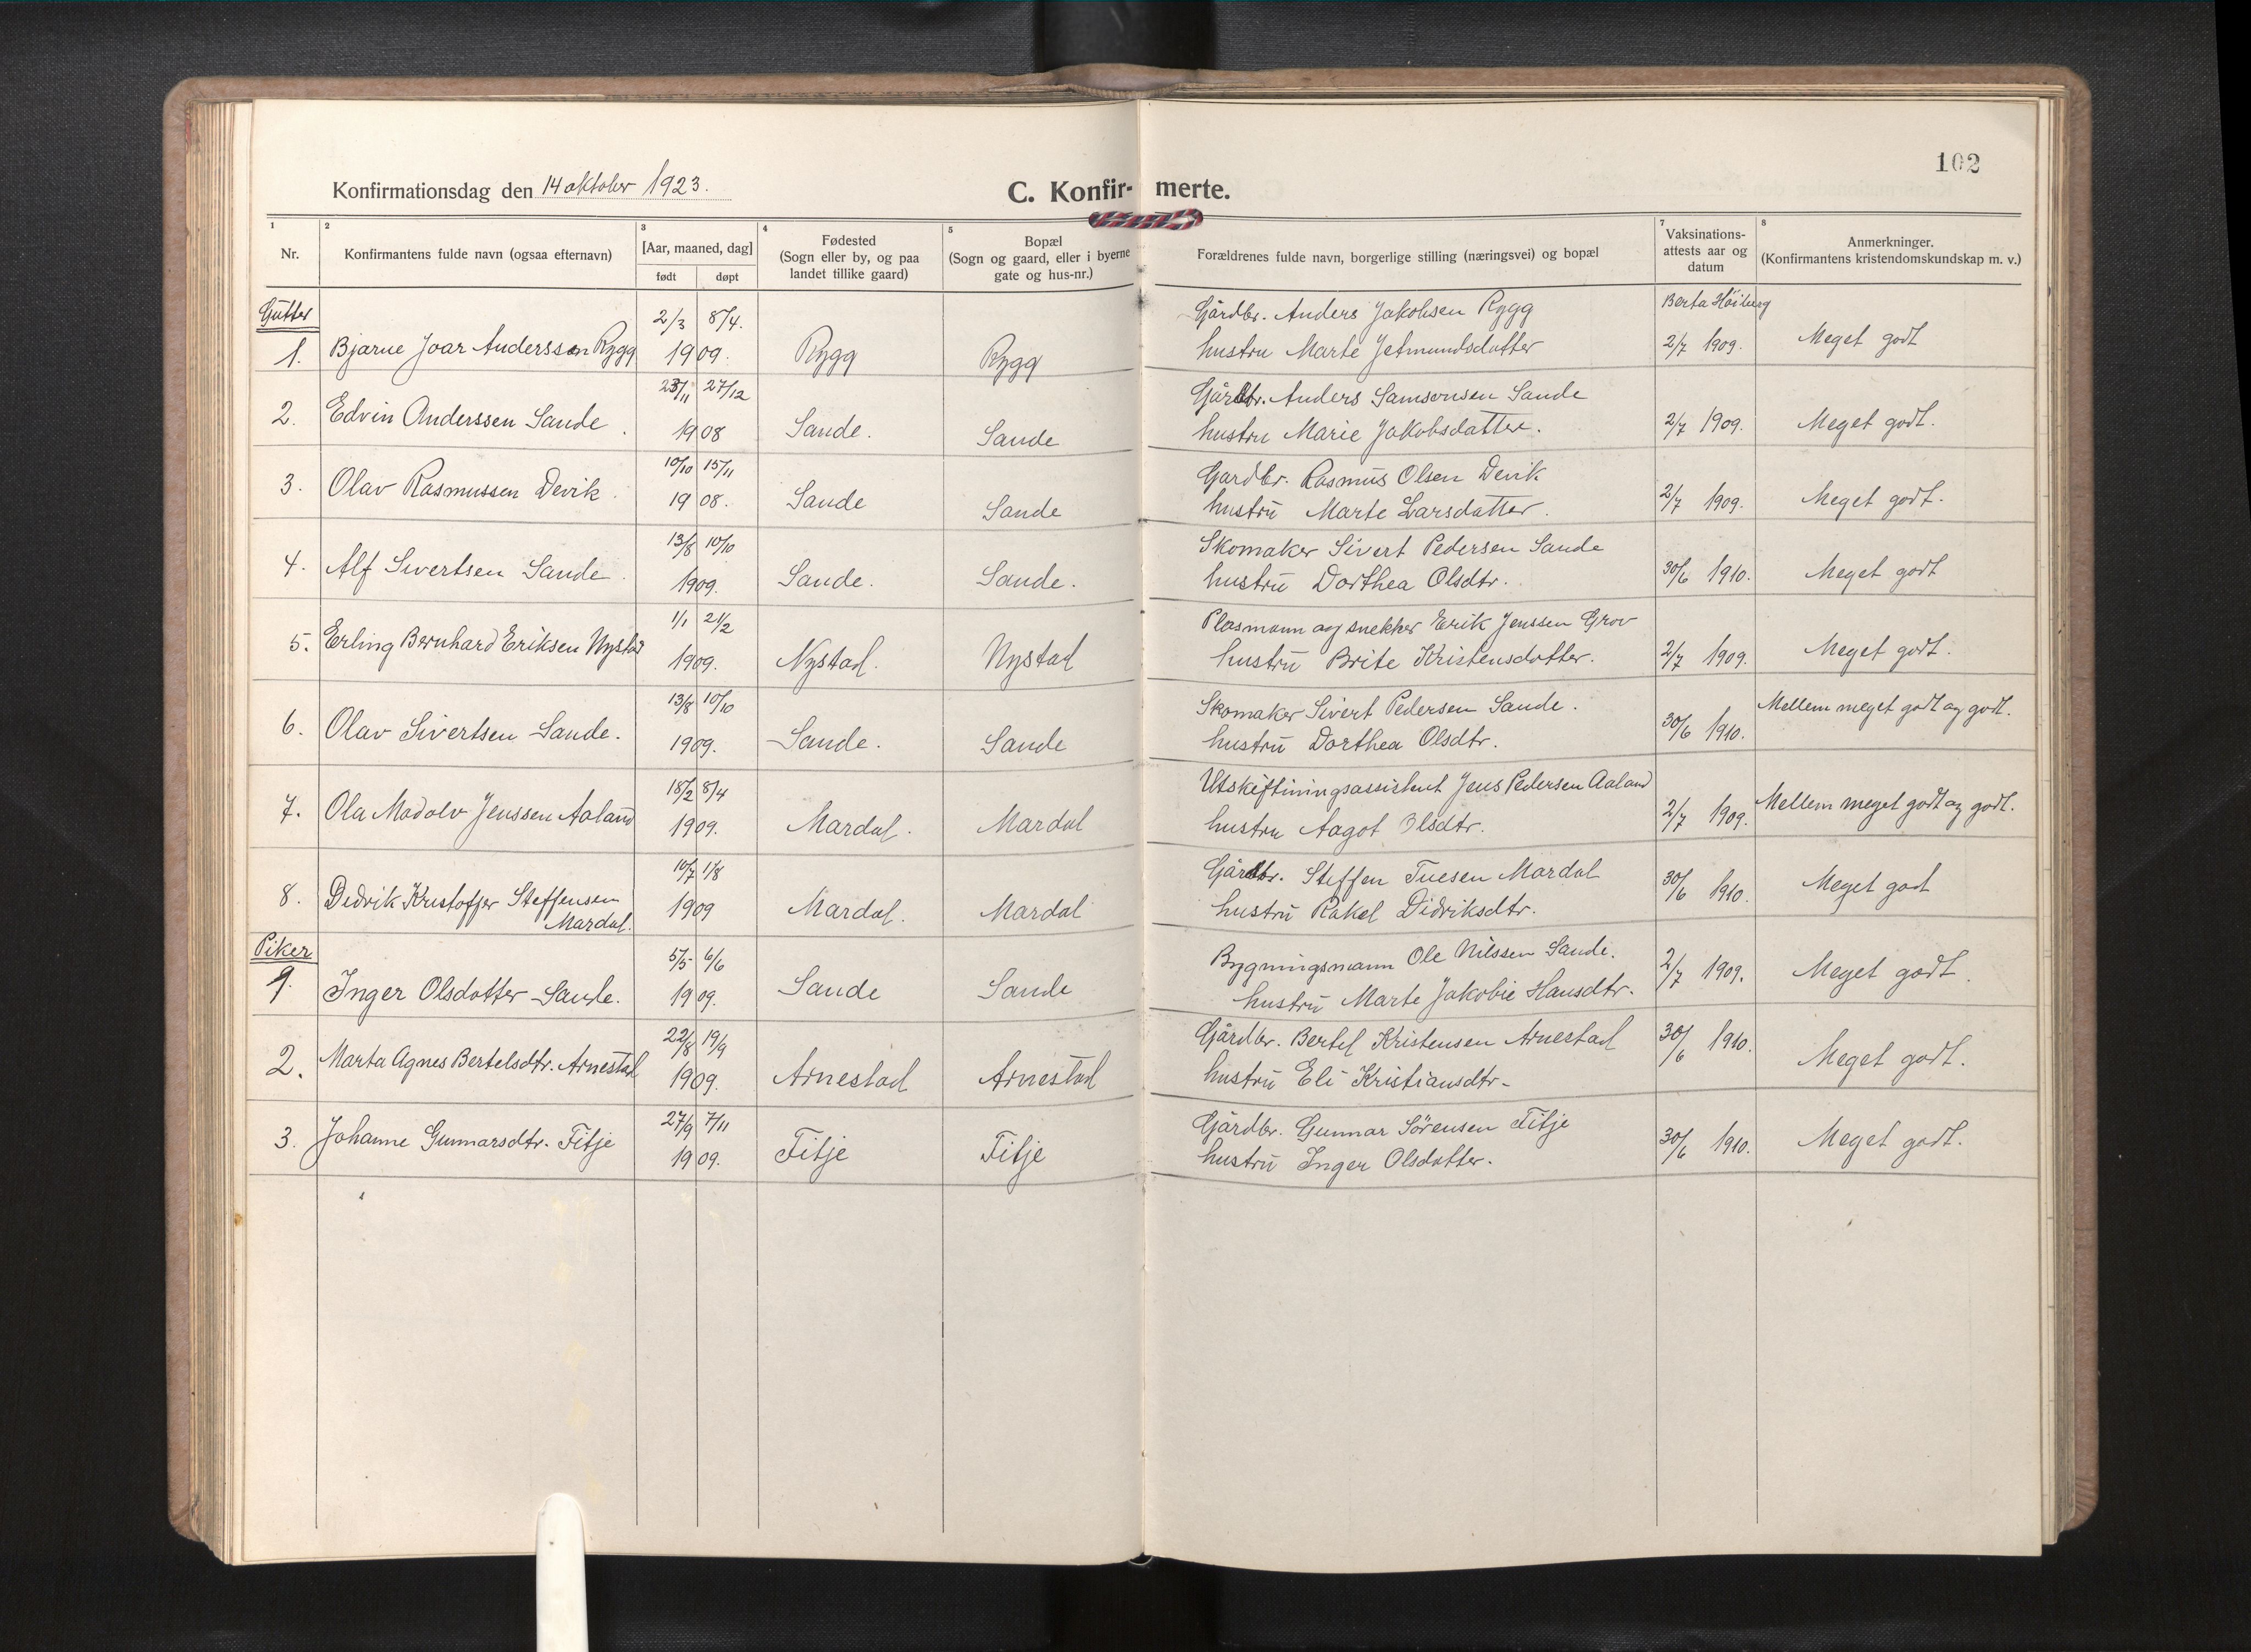 102
Konfirmationsdag den 14 oktober 1923.
C. Konfir- merte.
1 2 3 4 5 7 8
Nr.
Konfirmantens fulde navn (ogsaa efternavn)
[Aar, maaned, dag]
født døpt
Fødested
(Sogn eller by, og paa
landet tillike gaard)
Bopæl
(Sogn og gaard, eller i byerne
gate og hus-nr.)
Forældrenes fulde navn, borgerlige stilling (næringsvei) og bopæl
Vaksinations-
attests aar og
datum
Anmerkninger.
(Konfirmantens kristendomskundskap m. v.)
Gutter 2/3 8/4. Gårdbr. Anders Jakobsen Rygg Berta Höiberg
1. Bjarne Joar Anderssen Rygg 1909. Rygg Rygg hustru Marte Jetmundsdatter 2/7 1909. Meget godt
23/11 27/12 Gårdbr. Anders Samsonsen Sande
2. Edvin Anderssen Sande. 1908 Sande. Sande hustru Marie Jakobsdatter. 2/7 1909. Meget godt.
10/10 15/11 Gardbr. Rasmus Olsen Devik
3. Olav Rasmussen Devik. 1908. Sande Sande hustru Marte Larsdatter. 2/7 1909. Meget godt.
13/8 10/10 Skomaker Sivert Pedersen Sande
4. Alf Sivertsen Sande. 1909. Sande. Sande. hustru Dorthea Olsdtr. 30/6 1910. Meget godt
1/1 21/2 Plasmann og snekker Erik Jenssen Grov
5. Erling Bernhard Eriksen Nystad 1909. Nystad. Nystad hustru Brite Kristensdotter. 2/7 1909. Meget godt.
13/8 10/10 Skomaker Sivert Pedersen Sande. Mellem meget godt og godt.
6. Olav Sivertsen Sande. 1909. Sande. Sande hustru Dorthea Olsdtr. 30/6 1910.
18/2 8/4 Utskiftiningsassistent Jens Pedersen Aaland
7. Ola Modolv Jenssen Aaland 1909. Mardal. Mardal hustru Aagot Olsdtr. 2/7 1909. Mellem meget godt og godt.
10/7 1/8 Gårdbr. Steffen Tuesen Mardal
8. Dedrik Kristoffer Steffensen 1909 Mardal. Mardal hustru Rakel Didriksdtr. 30/6 1910. Meget godt
Mardal.
Piker 5/5 6/6 Bygningsmann Ole Nilssen Sande.
1. Inger Olsdotter Sande. 1909. Sande Sande hustru Marte Jakobie Hansdtr. 2/7 1909. Meget godt.
22/8 19/9 Gårdbr. Bertel Kristensen Arnestad 30/6 1910.
2. Marta Agnes Bertelsdtr. Arnestad 1909. Arnestad Arnestad hustru Eli Kristiansdtr. Meget godt.
27/9 7/11 Gårdbr. Gunnar Sörensen Fitje
3. Johanne Gunnarsdtr. Fitje 1909. Fitje Fitje hustru Inger Olsdotter. 30/6 1910. Meget godt.